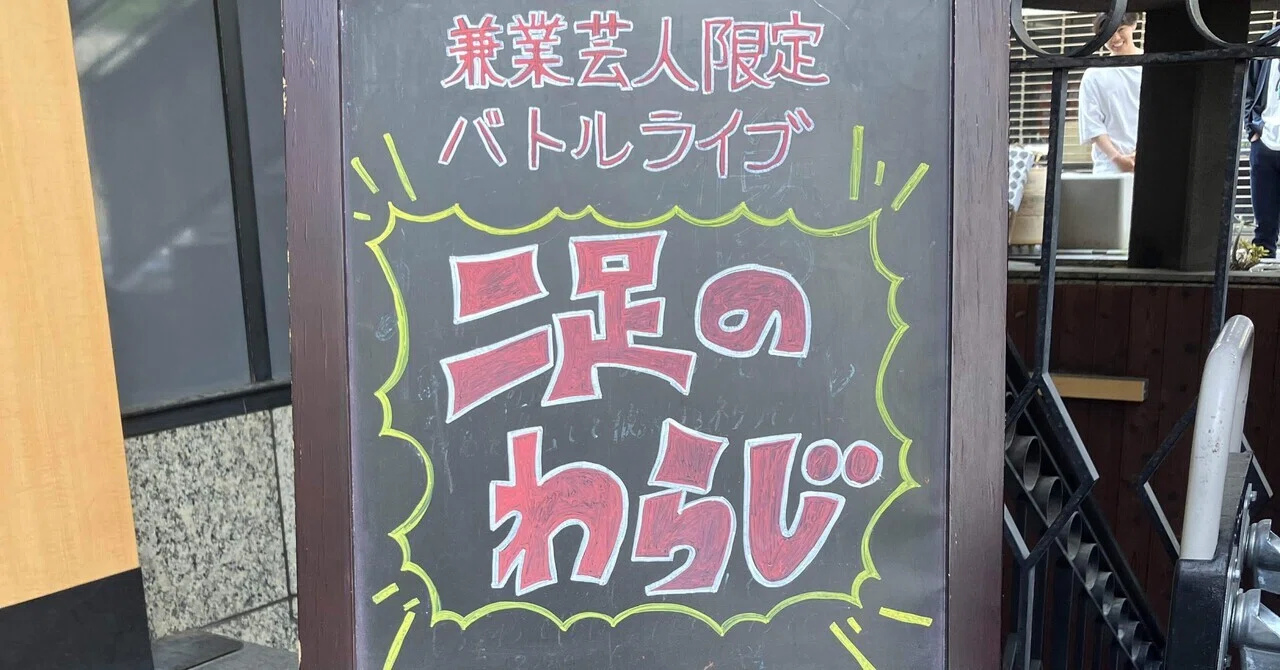 兼業芸人限定
バトルライブ
二足の
わらじ